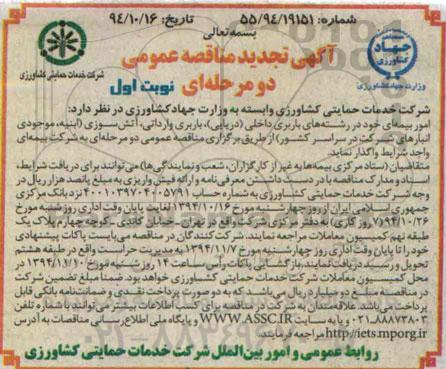 شماره: ۵۵/۹۴/۱۹۱۵۱ تاریخ: ۹۴/۱۰/۱۶
بسمه تعالی
آگهی تجدید مناقصه عمومی
دو مرحله‌ای نوبت اول
جهاد کشاورزی
وزارت جهاد کشاورزی
شرکت خدمات حمایتی کشاورزی
شرکت خدمات حمایتی کشاورزی وابسته به وزارت جهاد کشاورزی در نظر دارد:
امور بیمه‌ای خود در رشته‌های باربری داخلی (دریایی)، باربری وارداتی، آتش‌سوزی (ابنیه، موجودی
انبارهای شرکت در سراسر کشور) از طریق برگزاری مناقصه عمومی دو مرحله‌ای به شرکت بیمه‌ای
واجد شرایط واگذار نماید.
متقاضیان (ستاد مرکزی بیمه‌ها به غیر از کارگزاران، شعب و نمایندگی‌ها) می‌توانند برای دریافت شرایط،
اسناد و مدارک مناقصه با در دست داشتن معرفی‌نامه و ارائه فیش واریزی به مبلغ پانصد هزار ریال در
وجه شرکت خدمات حمایتی کشاورزی به شماره حساب ۴۰۰۱۰۳۹۷۰۴۰۰۵۷۹۱ نزد بانک مرکزی
جمهوری اسلامی ایران از روز چهارشنبه مورخ ۱۳۹۴/۱۰/۱۶ لغایت پایان وقت اداری روز شنبه مورخ
۹۴/۱۰/۲۶ (۷ روز کاری) به دفتر مرکزی شرکت واقع در تهران-خیابان گاندی-کوچه چهارم پلاک یک
طبقه نهم کمیسیون معاملات مراجعه نمایند. شرکت‌کنندگان در مناقصه می‌بایست پاکات پیشنهادی
خود را تا پایان وقت اداری روز چهارشنبه مورخ ۱۳۹۴/۱۱/۷ به مدیریت حراست واقع در طبقه هشتم
تحویل و رسید دریافت نمایند. بازگشایی پاکات رأس ساعت ۱۴ روز شنبه مورخ ۱۳۹۴/۱۱/۱۰ در
محل کمیسیون معاملات شرکت خدمات حمایتی کشاورزی خواهد بود. ضمناً مبلغ تضمین شرکت
در مناقصه مبلغ دو میلیارد ریال می‌باشد که به دو صورت پرداخت نقدی و ضمانت‌نامه بانکی قابل
پرداخت می‌باشد. علاقه‌مندان به شرکت در مناقصه برای کسب اطلاعات بیشتر می‌توانند با شماره تلفن
۰۲۱-۸۸۸۷۳۸۰۳ و یا به سایت WWW.ASSC.IR و پایگاه ملی اطلاع‌رسانی مناقصات به آدرس
http://iets.mporg.ir مراجعه فرمایند.
روابط عمومی و امور بین‌الملل شرکت خدمات حمایتی کشاورزی